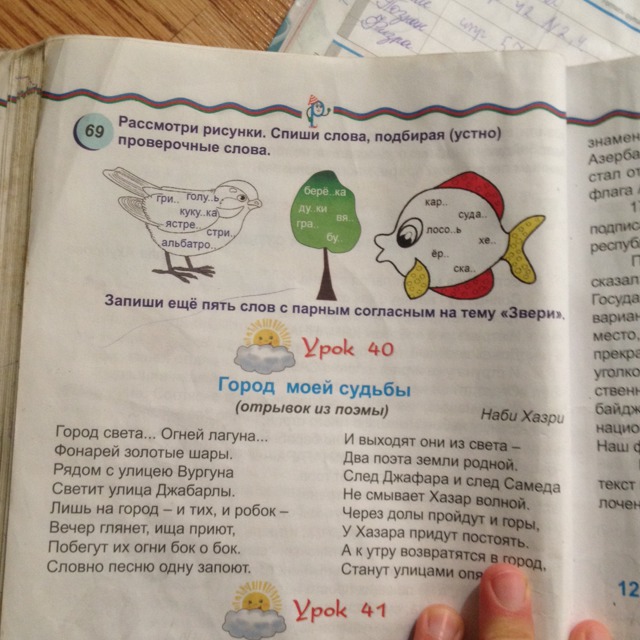 69 Рассмотри рисунки. Спиши слова, подбирая (устно)
проверочные слова.
гри.. голу..ь
куку..ка
ястре..
стри..
альбатро..
берё..ка
ду..ки
вя..
гра..
бу..
кар..
суда..
лосо..ь
хе..
ёр..
ска..
Запиши ещё пять слов с парным согласным на тему «Звери».
Урок 40
Город моей судьбы
(отрывок из поэмы)
Наби Хазри
Город света... Огней лагуна...
Фонарей золотые шары.
Рядом с улицею Вургуна
Светит улица Джабарлы.
Лишь на город – и тих, и робок –
Вечер глянет, ища приют,
Побегут их огни бок о бок.
Словно песню одну запоют.
И выходят они из света –
Два поэта земли родной.
След Джафара и след Самеда
Не смывает Хазар волной.
Через долы пройдут и горы,
У Хазара придут постоять.
А к утру возвратятся в город,
Станут улицами
Урок 41
знамен
Азерба
стал от
флага
подпис
республ
сказал
Госуда
вариан
место,
прекра
уголко
ственн
байдж
нацио
Наш ф
текст
лочен
12